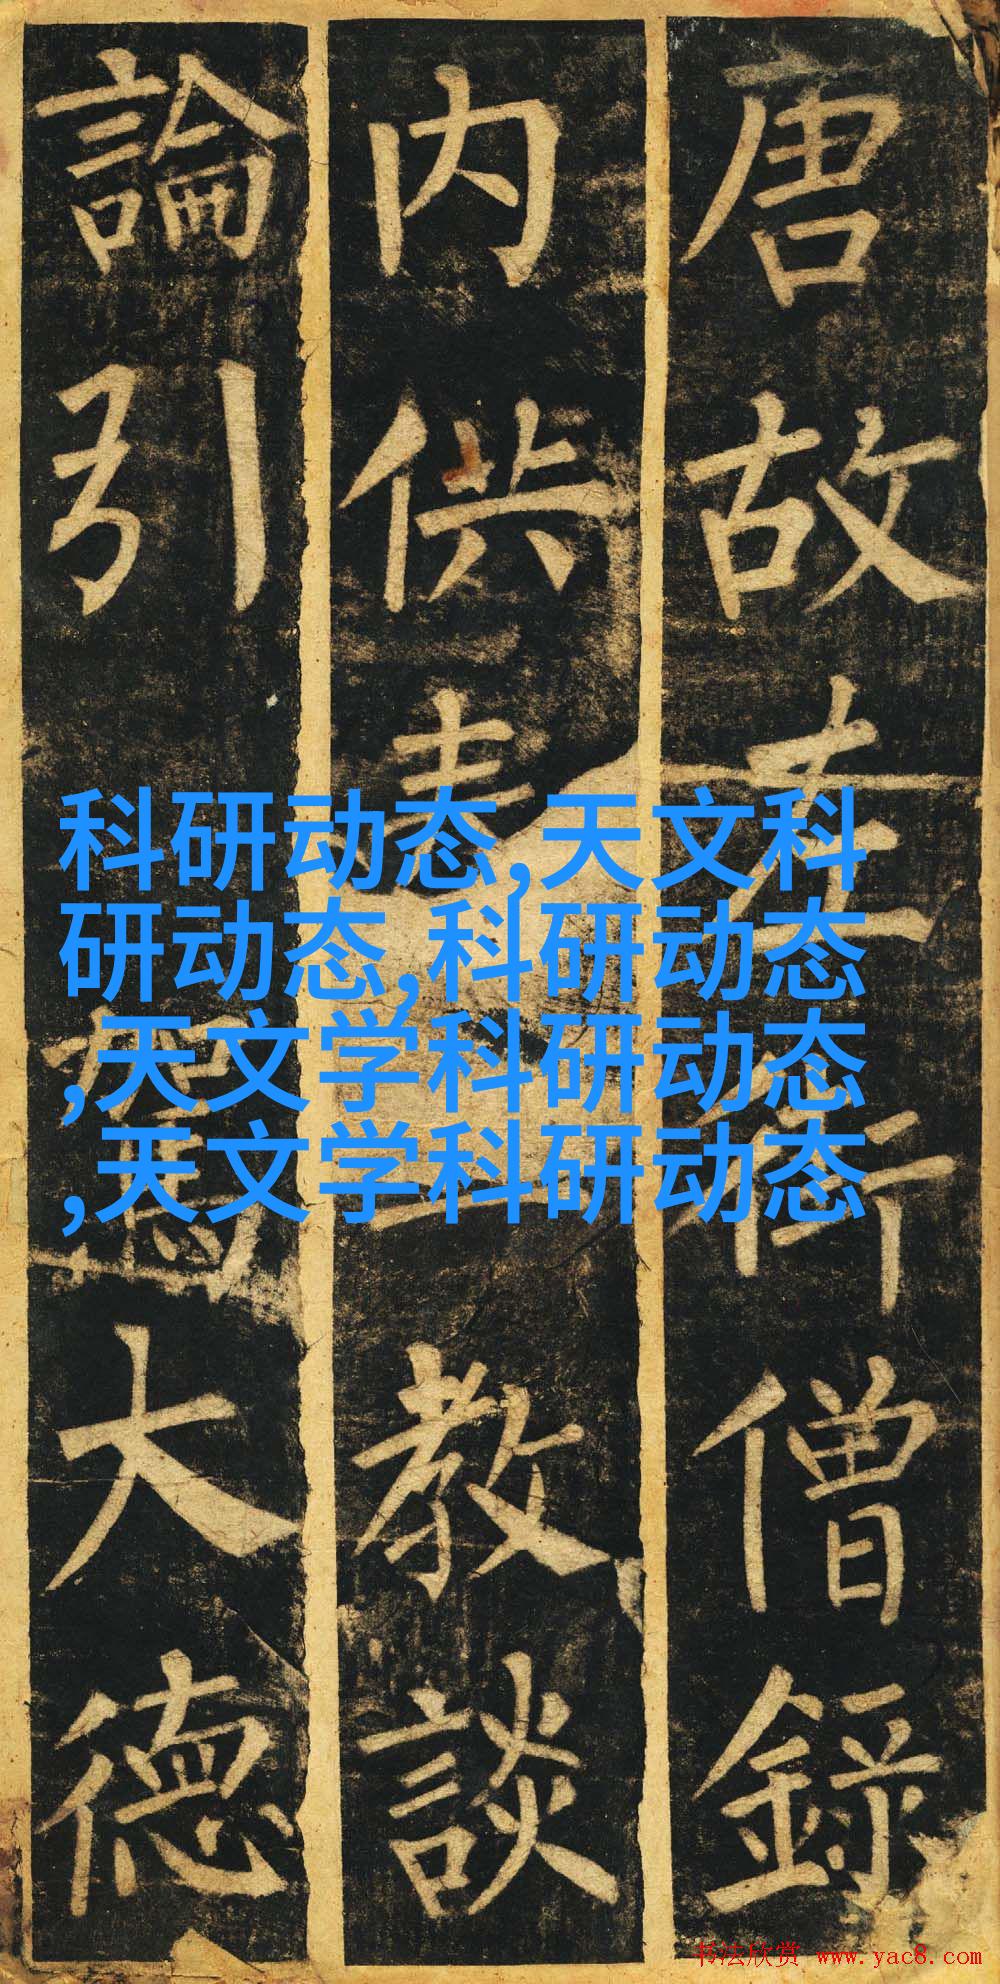 唐故左街僧錄
内供奉教談
論引駕大德
科研动态,天文科
研动态,科研动态
,天文学科研动态
,天文学科研动态
书法欣赏 www.yac8.com